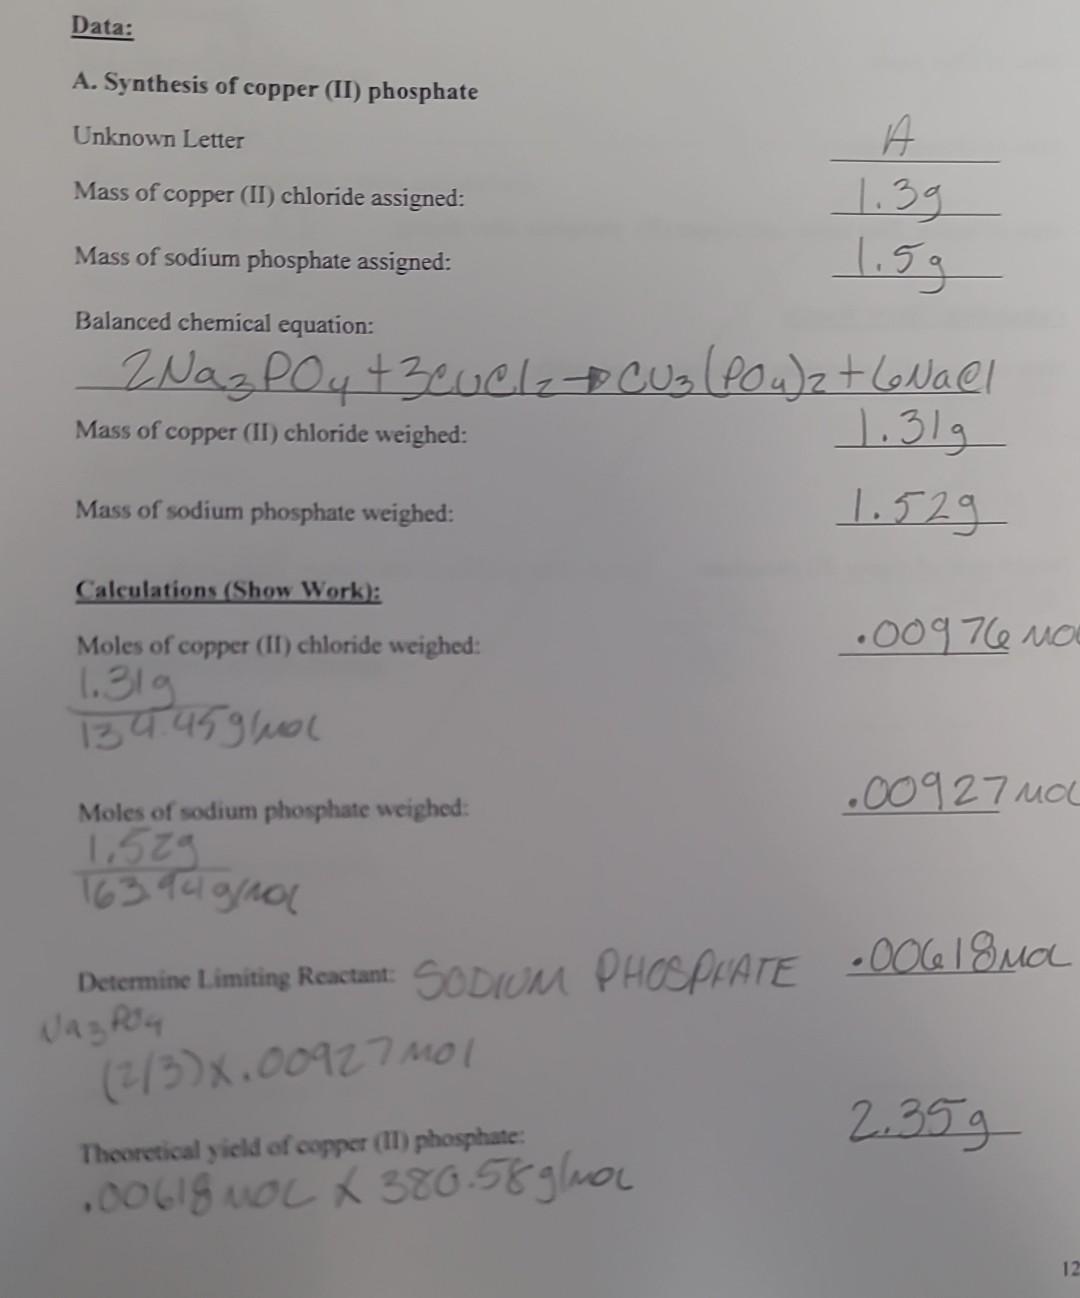 Data:
A. Synthesis of copper (II) phosphate
Unknown Letter A
Mass of copper (II) chloride assigned: 1.3g
Mass of sodium phosphate assigned: 1.5g
Balanced chemical equation:
2Na3PO4 + 3CuCl2 → Cu3(PO4)2 + 6NaCl
Mass of copper (II) chloride weighed: 1.31g
Mass of sodium phosphate weighed: 1.52g
Calculations (Show Work):
Moles of copper (II) chloride weighed: .00976 mo
1.31g
134.45g/mol
Moles of sodium phosphate weighed: .00927 mol
1.52g
163.94g/mol
Determine Limiting Reactant: SODIUM PHOSPHATE .00618 mol
Na3PO4
(2/3)x.00927 mol
Theoretical yield of copper (II) phosphate: 2.35g
.00618 mol x 380.58g/mol
12